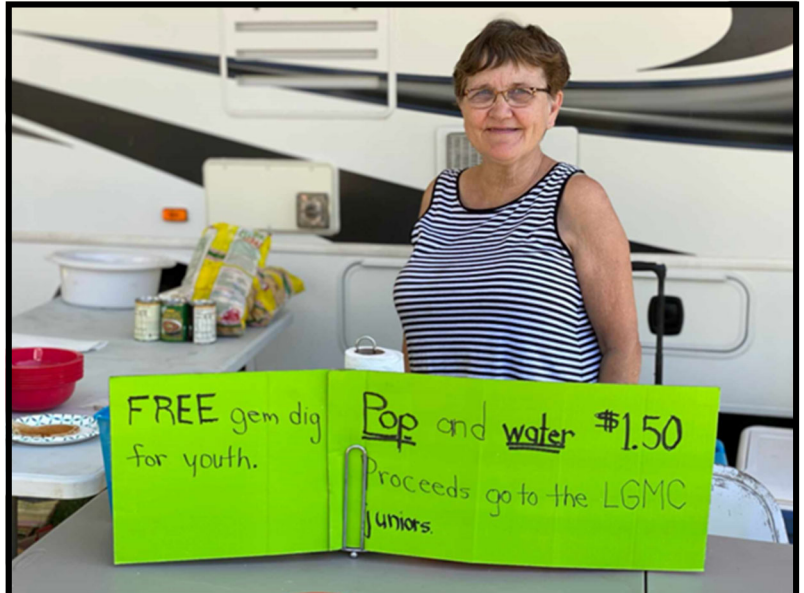 FREE gem dig
for youth.
Pop and water $1.50
Proceeds go to the LGMC
juniors.